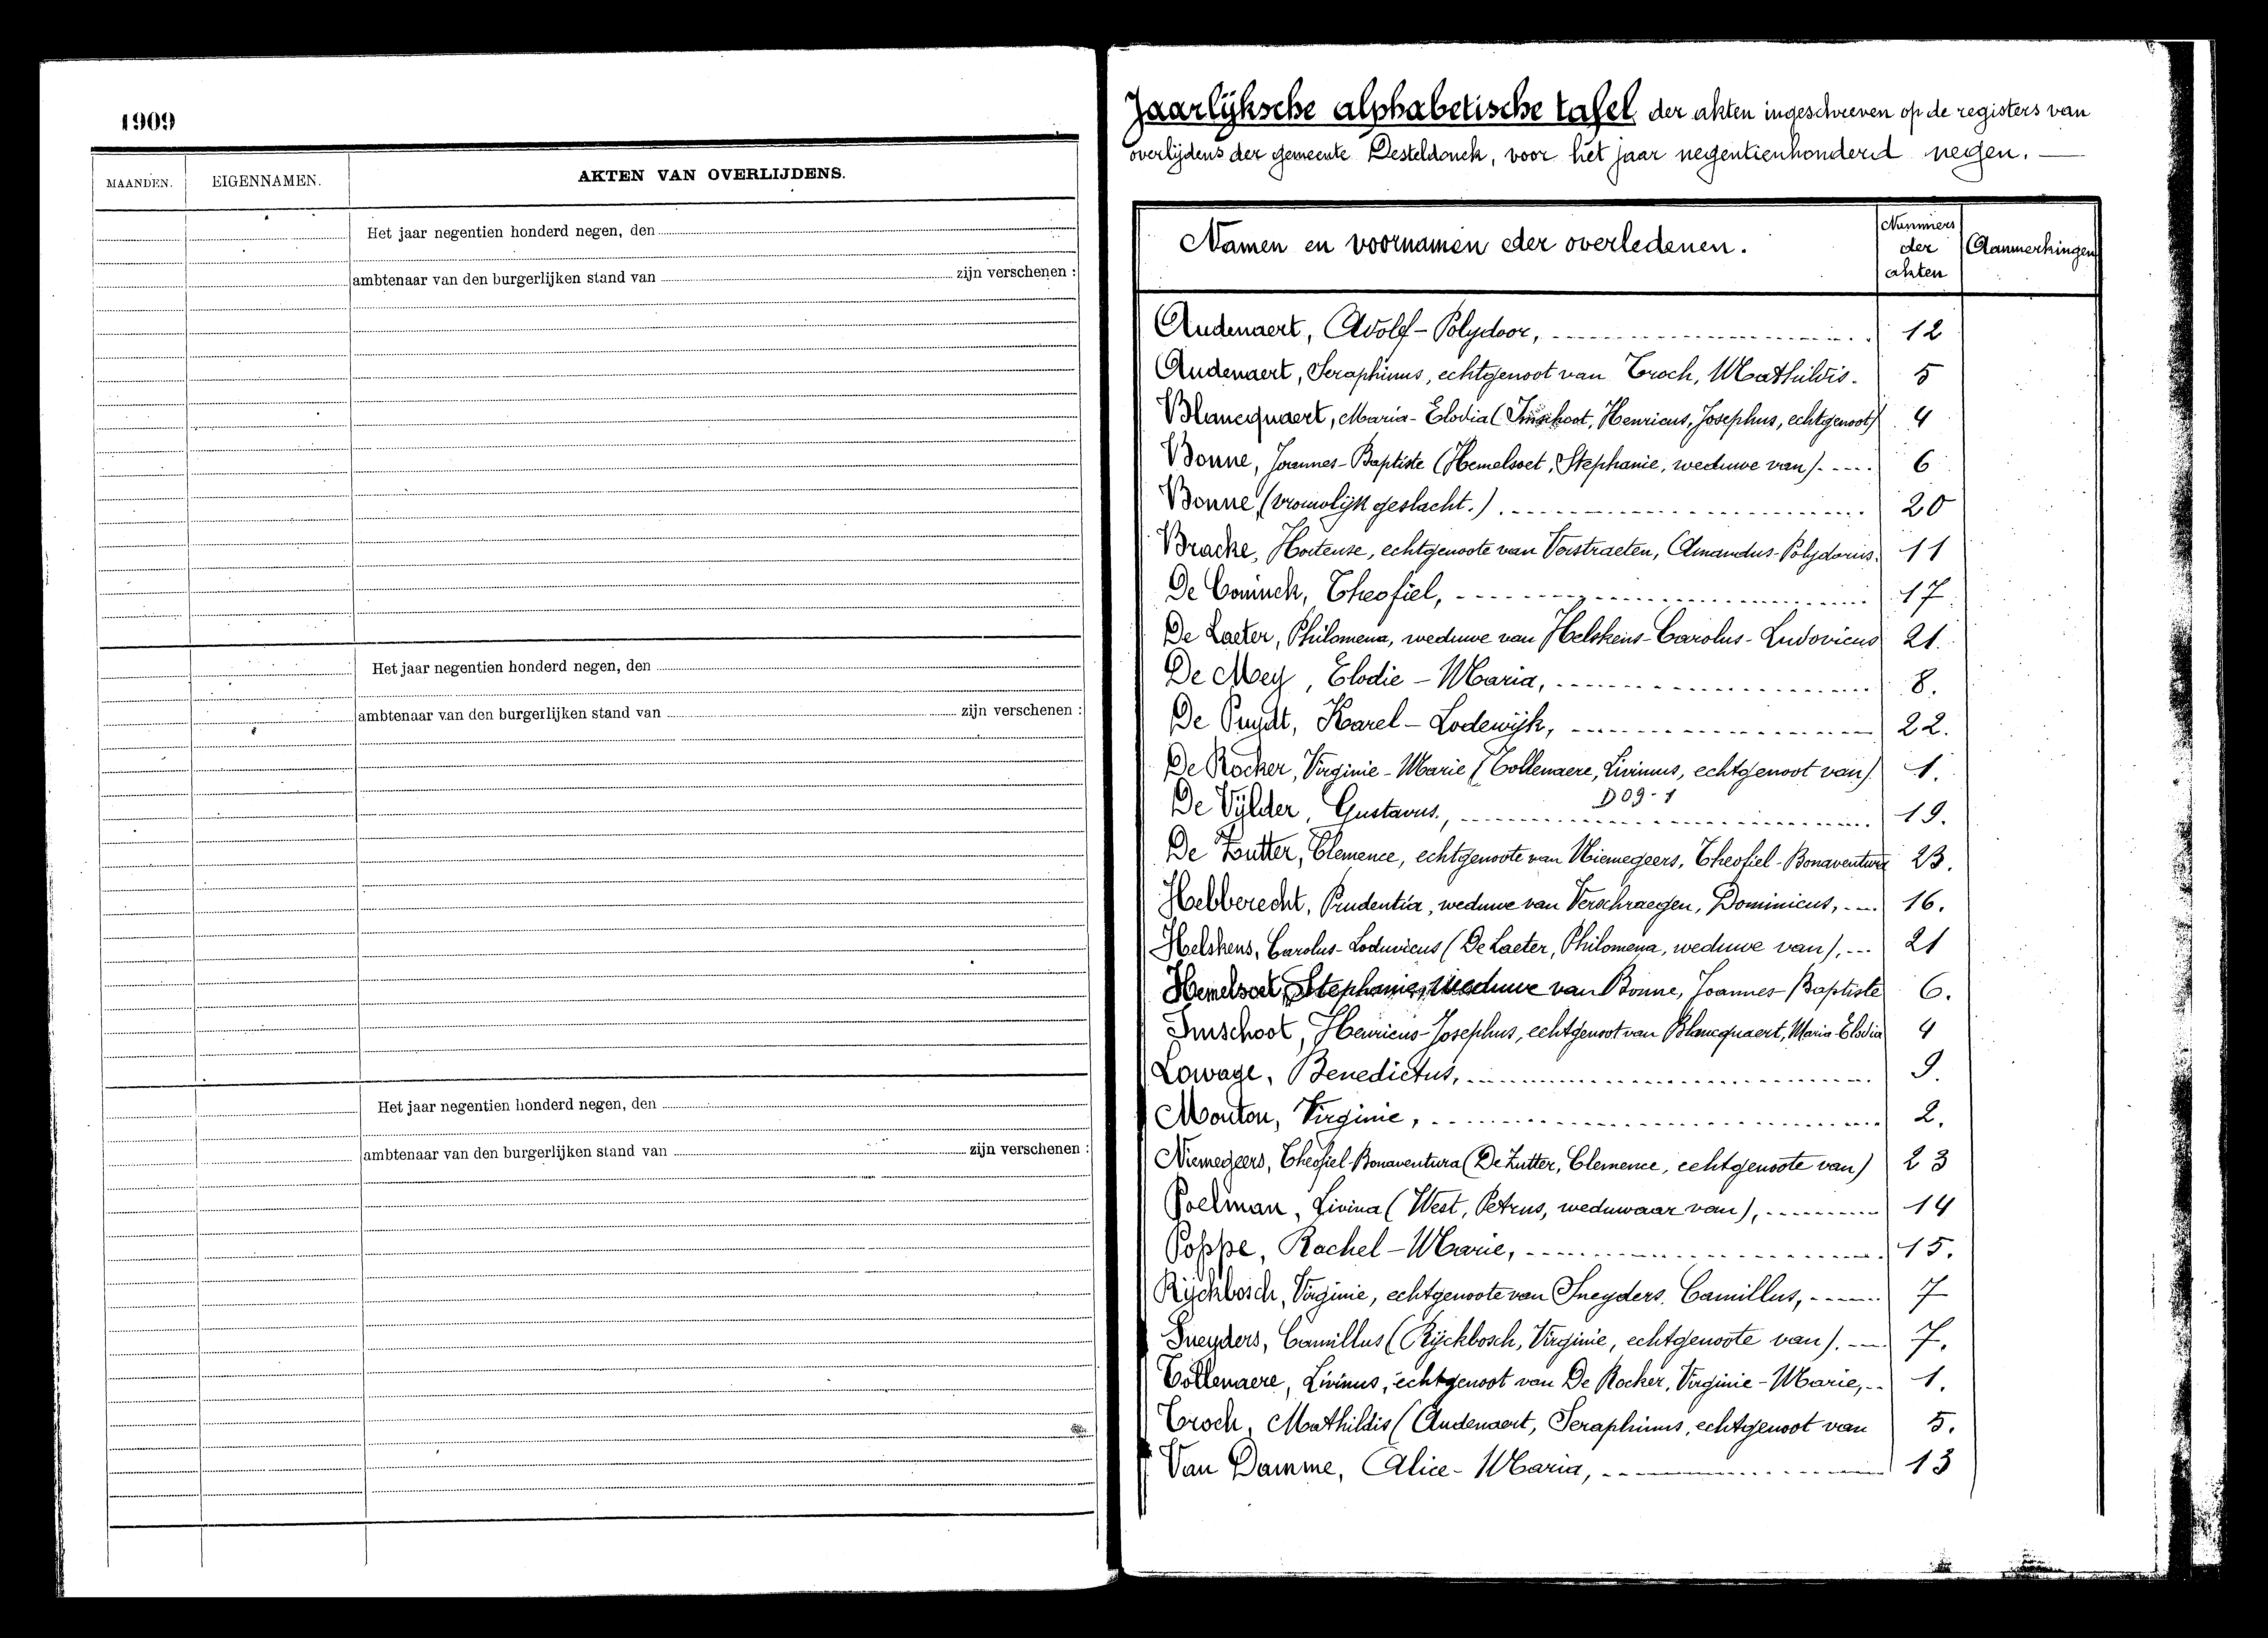 1909
MAANDEN. EIGENNAMEN. AKTEN VAN OVERLIJDENS.
Het jaar negentien honderd negen, den
ambtenaar van den burgerlijken stand van zijn verschenen :
Het jaar negentien honderd negen, den
ambtenaar van den burgerlijken stand van zijn verschenen :
Het jaar negentien honderd negen, den
ambtenaar van den burgerlijken stand van zijn verschenen :
Jaarlijksche alphabetische tafel der akten ingeschreven op de registers van
overlijdens der gemeente Desteldonck, voor het jaar negentienhonderd negen.
Namen en voornamen der overledenen. Nummers der akten Aanmerkingen
Audenaert, Adolf-Polydoor, 12
Audenaert, Seraphinus, echtgenoot van Troch, Mathildis. 5
Blancquaert, Maria-Elodia (Imschoot, Henricus, Josephus, echtgenoot) 4
Bonne, Joannes-Baptiste (Hemelsoet, Stephanie, weduwe van) 6
Bonne (vrouwlijk geslacht.) 20
Bracke, Hortense, echtgenoote van Verstraeten, Amandus-Polydorus. 11
De Coninck, Theofiel, 17
De Laeter, Philomena, weduwe van Helskens-Carolus-Ludovicus 21.
De Mey, Elodie-Maria, 8.
De Puydt, Karel-Lodewijk, 22.
De Rocker, Virginie-Marie (Tollenaere, Livinus, echtgenoot van) 1.
D09-1
De Vylder, Gustavus., 19.
De Zutter, Clemence, echtgenoote van Niemegeers, Theofiel-Bonaventura 23.
Hebberecht, Prudentia, weduwe van Verschraegen, Dominicus, 16.
Helskens, Carolus-Loduvicus (De Laeter, Philomena, weduwe van), 21
Hemelsoet, Stephanie, Weduwe van Bonne, Joannes-Baptiste 6.
Imschoot, Henricus-Josephus, echtgenoot van Blancquaert, Maria-Elodia 4
Lowage, Benedictus, 9.
Mouton, Virginie, 2.
Niemegeers, Theofiel-Bonaventura (De Zutter, Clemence, echtgenoote van) 23
Poelman, Livina (West, Petrus, weduwaar van), 14
Poppe, Rachel-Marie, 15.
Rijckbosch, Virginie, echtgenoote van Sneyders. Camillus, 7
Sneyders, Camillus (Rijckbosch, Virginie, echtgenoote van). 7.
Tollenaere, Livinus, echtgenoot van De Rocker, Virginie-Marie, 1.
Troch, Mathildis (Audenaert, Seraphinus, echtgenoot van 5.
Van Damme, Alice-Maria, 13